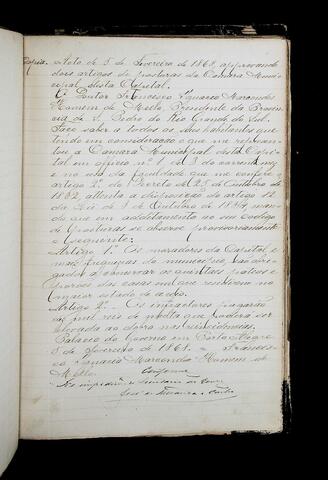 Copia. Acto de 5 de Fevereiro de 1868, approvando
dois artigos de posturas da Camara Muni-
cipal desta Capital.
O Doutor Francisco Ignacio Marcondes
Homem de Mello, Presidente da Provin-
cia de S. Pedro do Rio Grande do Sul.
Faço saber a todos os seus habitantes que
tendo em consideração o que me represen-
tou a Camara Municipal desta Capi-
tal em officio nº 1 de 3 do corrente mez,
e no uso da faculdade que me confere o
artigo 2º do Decreto de 25 de Outubro de
1832, attenta a disposição do artigo 12
da Lei de 3 de Outubro de 1834, man-
do que em additamento ao seu codigo
de Posturas se observe provisoriamente
o seguinte:
Artigo 1º Os moradores da Capital e
mais freguezias do municipio, são obri-
gados a conservar os quintaes, pateos e
porões das casas em que residirem no
maior estado de aceio.
Artigo 2º Os infractores pagarão
mil reis de multa que poderá ser
elevada ao dobro nas reincidencias.
Palacio do Governo em Porto Alegre
5 de Fevereiro de 1868. = Francis-
co Ignacio Marcondes Homem de
Mello.
Conforme
No impedimento do Secretario do
José